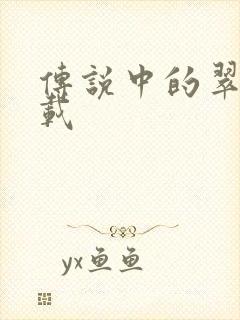 傳說中的翠
載
yx鱼鱼